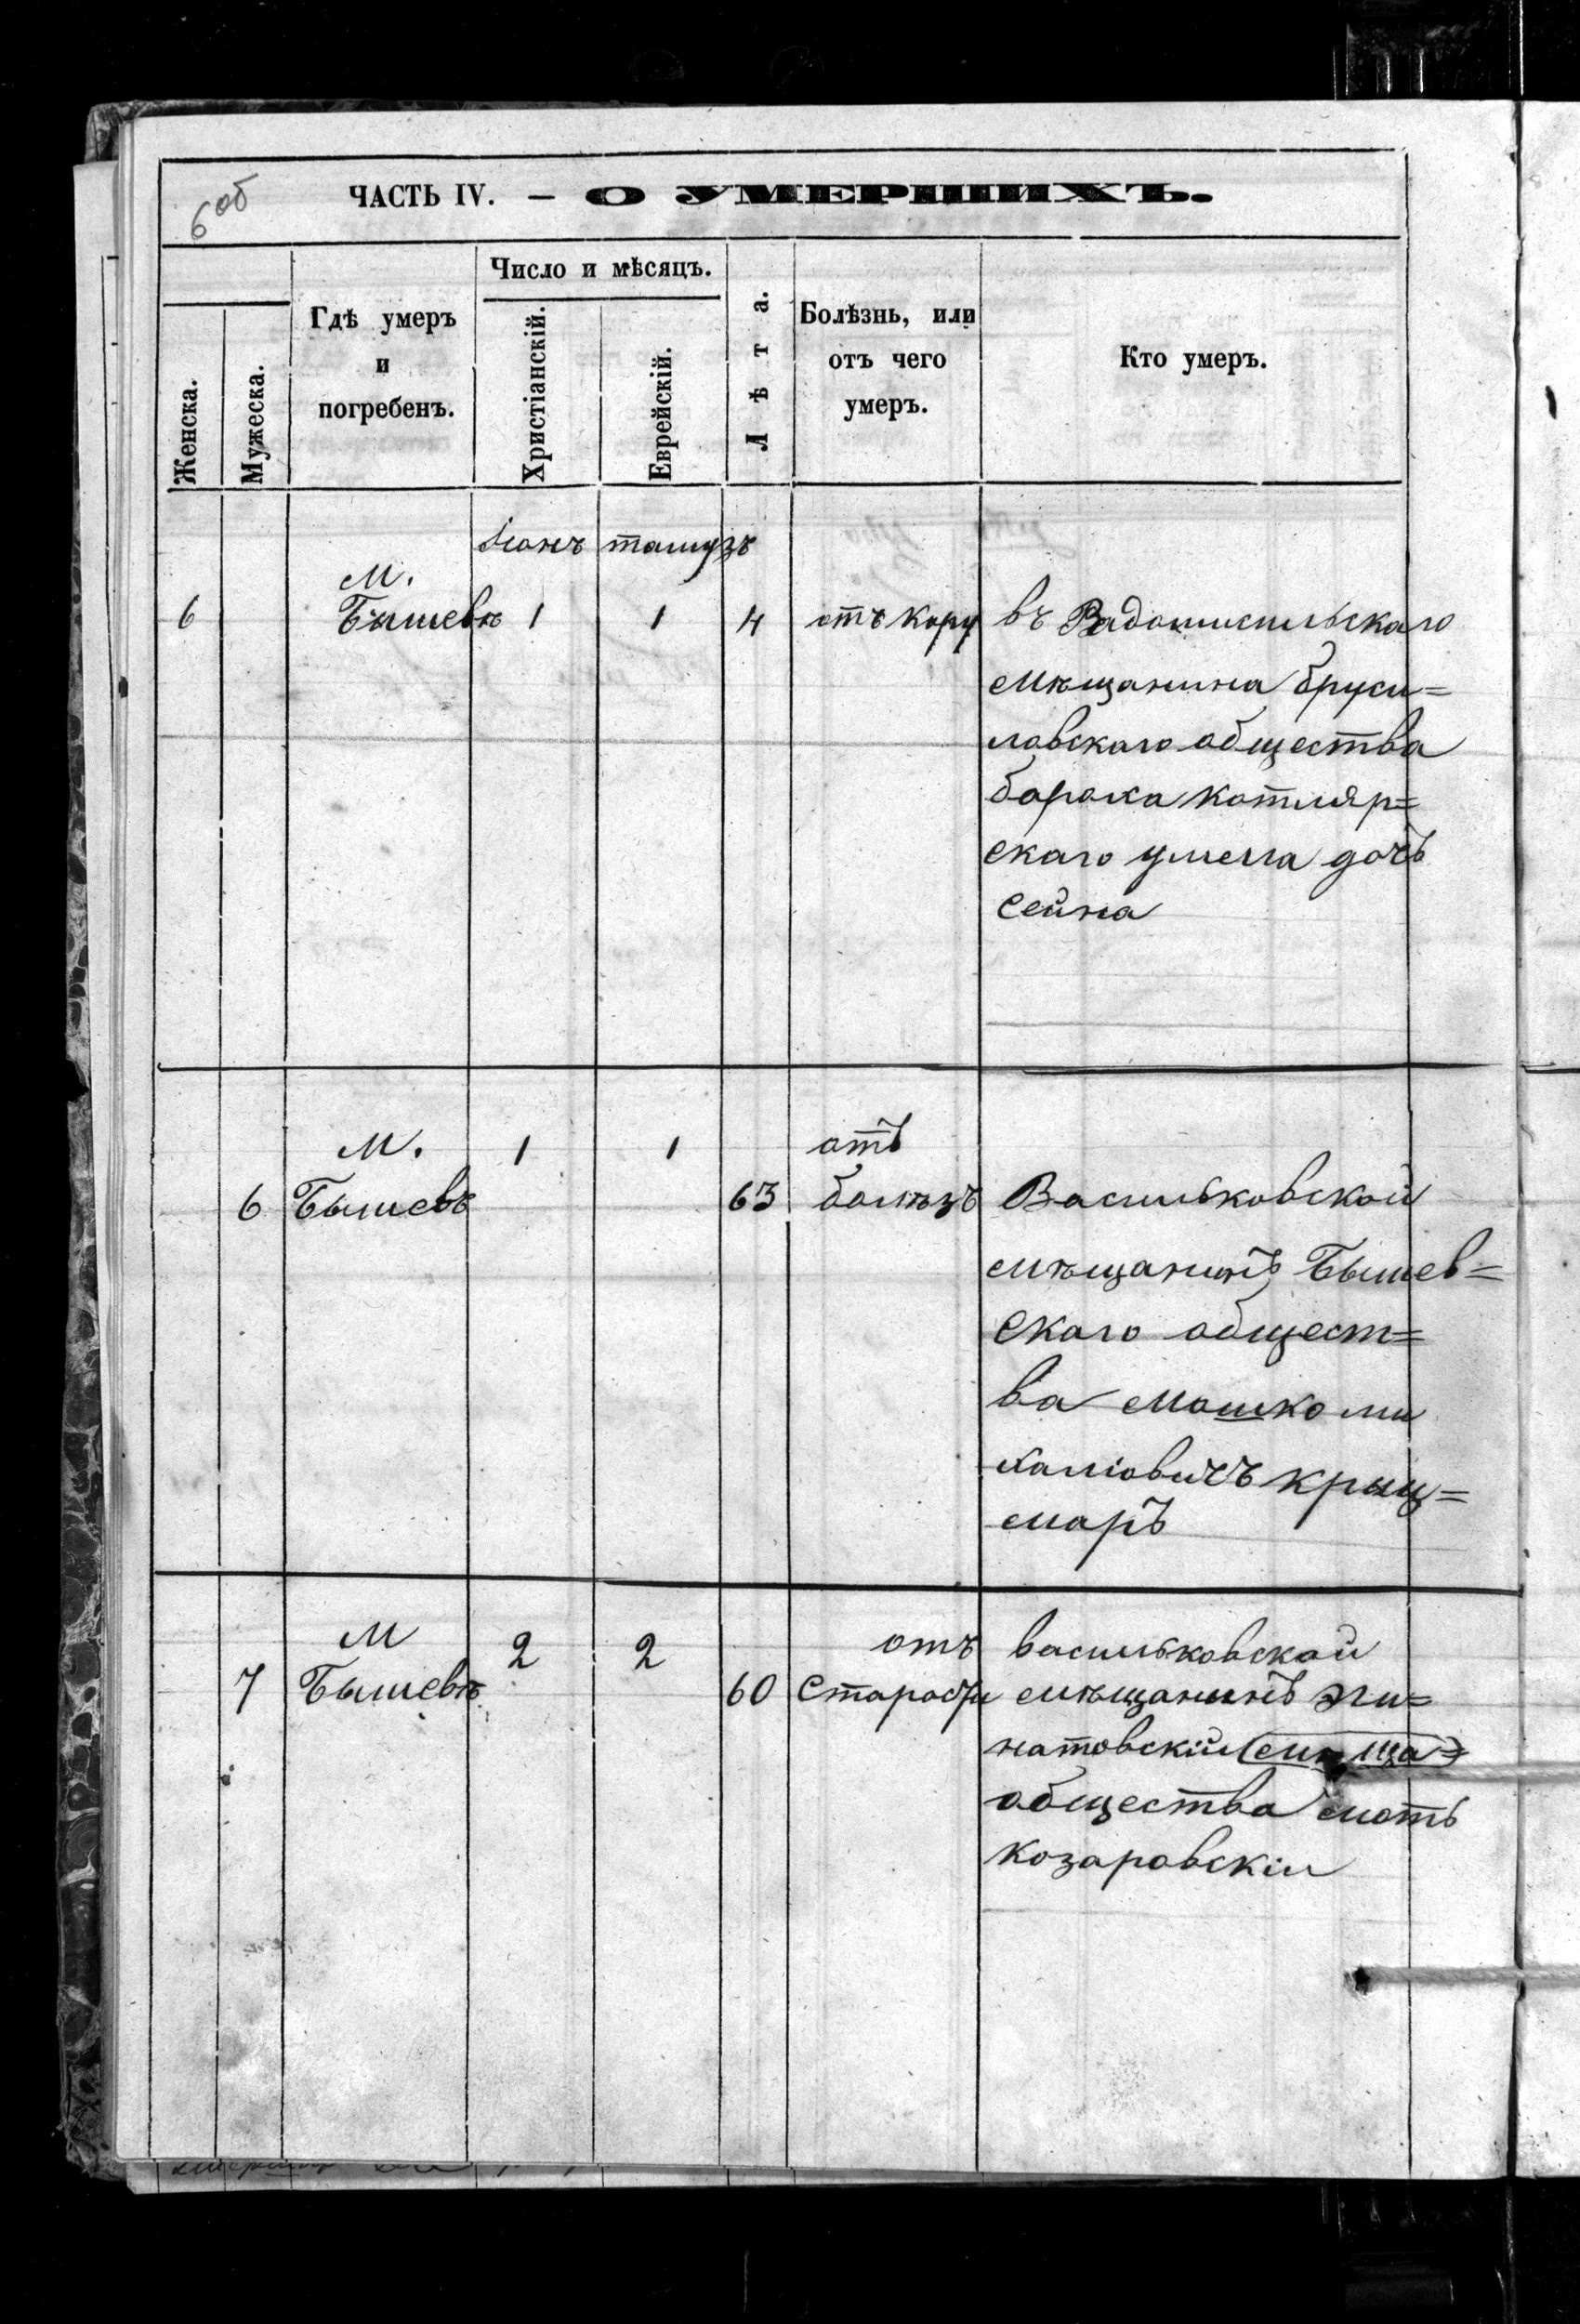 6 об
ЧАСТЬ IV. — О УМЕРШИХЪ.
Женска.
Мужеска.
Гдѣ умеръ
и
погребенъ.
Число и мѣсяцъ.
Христіанскій.
Еврейскій.
Лѣта.
Болѣзнь, или
отъ чего
умеръ.
Кто умеръ.
Іюнъ тамузъ
М.
6 Бышевѣ 1 1 4 отъ кору въ Радомисльскаго
мѣщанина бруси=
ловскаго общества
борока котляр=
скаго умела дочъ
Сейна
М. 1 1 отъ
6 Бышевѣ 63 болѣзъ Васильковской
мѣщанинъ Бышев=
скаго общест=
ва мошко ми
халіовичъ крыц=
маръ
М 2 2 отъ васильковской
7 Бышевѣ 60 старости мѣщанинъ
натовскій (мѣща=)
общества мотъ
козаровскій